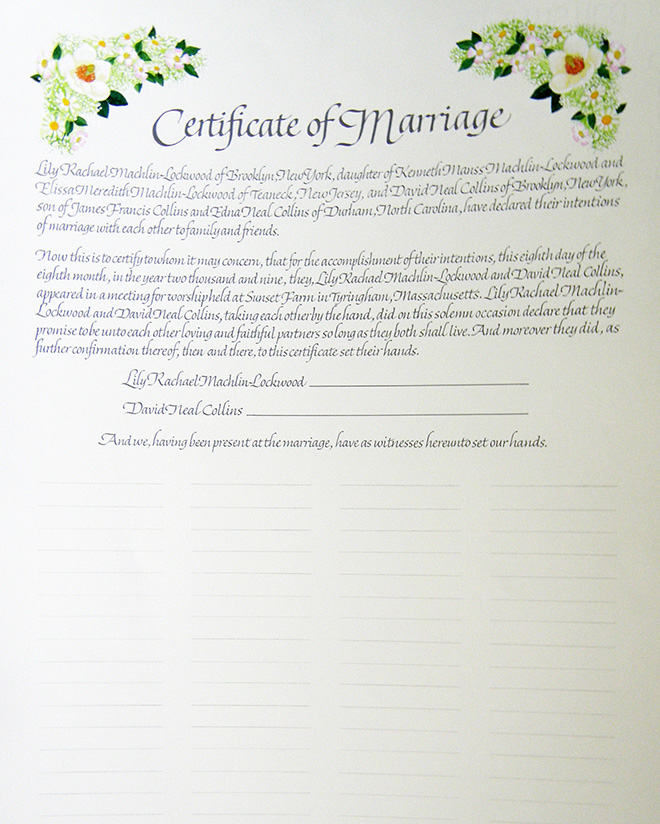 Certificate of Marriage
Lily Rachael Machlin-Lockwood of Brooklyn, New York, daughter of Kenneth Manss Machlin-Lockwood and
Elissa Meredith Machlin-Lockwood of Teaneck, New Jersey, and David Neal Collins of Brooklyn, New York,
son of James Francis Collins and Edna Neal Collins of Durham, North Carolina, have declared their intentions
of marriage with each other to family and friends.
Now this is to certify to whom it may concern, that for the accomplishment of their intentions, this eighth day of the
eighth month, in the year two thousand and nine, they, Lily Rachael Machlin-Lockwood and David Neal Collins,
appeared in a meeting for worship held at Sunset Farm in Tyringham, Massachusetts. Lily Rachael Machlin-
Lockwood and David Neal Collins, taking each other by the hand, did on this solemn occasion declare that they
promise to be unto each other loving and faithful partners so long as they both shall live. And moreover they did, as
further confirmation thereof, then and there, to this certificate set their hands.
Lily Rachael Machlin-Lockwood
David Neal Collins
And we, having been present at the marriage, have as witnesses hereunto set our hands.